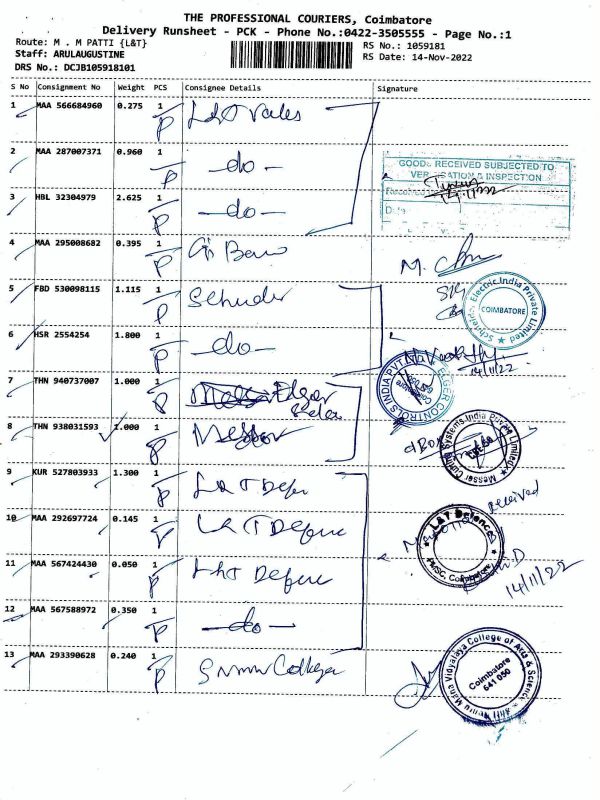 THE PROFESSIONAL COURIERS, Coimbatore
Delivery Runsheet - PCK - Phone No.:0422-3505555 - Page No.:1
Route: M . M PATTI {L&T}
RS No.: 1059181
Staff: ARULAUGUSTINE
RS Date: 14-Nov-2022
DRS No.: DCJB105918101
S No Consignment No Weight PCS Consignee Details Signature
1 MAA 566684960 0.275 1 P L&T Valves
2 MAA 287007371 0.960 1 P -do-
GOODS RECEIVED SUBJECTED TO
VERIFICATION & INSPECTION
3 HBL 32304979 2.625 1 P -do-
14/11/22
Date
4 MAA 295008682 0.395 1 P
M.
5 FBD 530098115 1.115 1 P
Electric India Private Limited
COIMBATORE
6 HSR 2554254 1.800 1 P -do-
14/11/22
7 THN 940737007 1.000 1 P
ELGER CONTROLS INDIA PVT.
8 THN 938031593 1.000 1 P Messer
Messer Cutting Systems India Private Limited
9 KUR 527803933 1.300 1 P L&T Defe
received
10 MAA 292697724 0.145 1 P L&T Defence
L&T Defence
PMSC, Coimbatore
11 MAA 567424430 0.050 1 P L&T Defence
14/11/22
12 MAA 567588972 0.350 1 P -do-
13 MAA 293390628 0.240 1 P College
Vidyalaya College of Arts & Science
Coimbatore
641 050